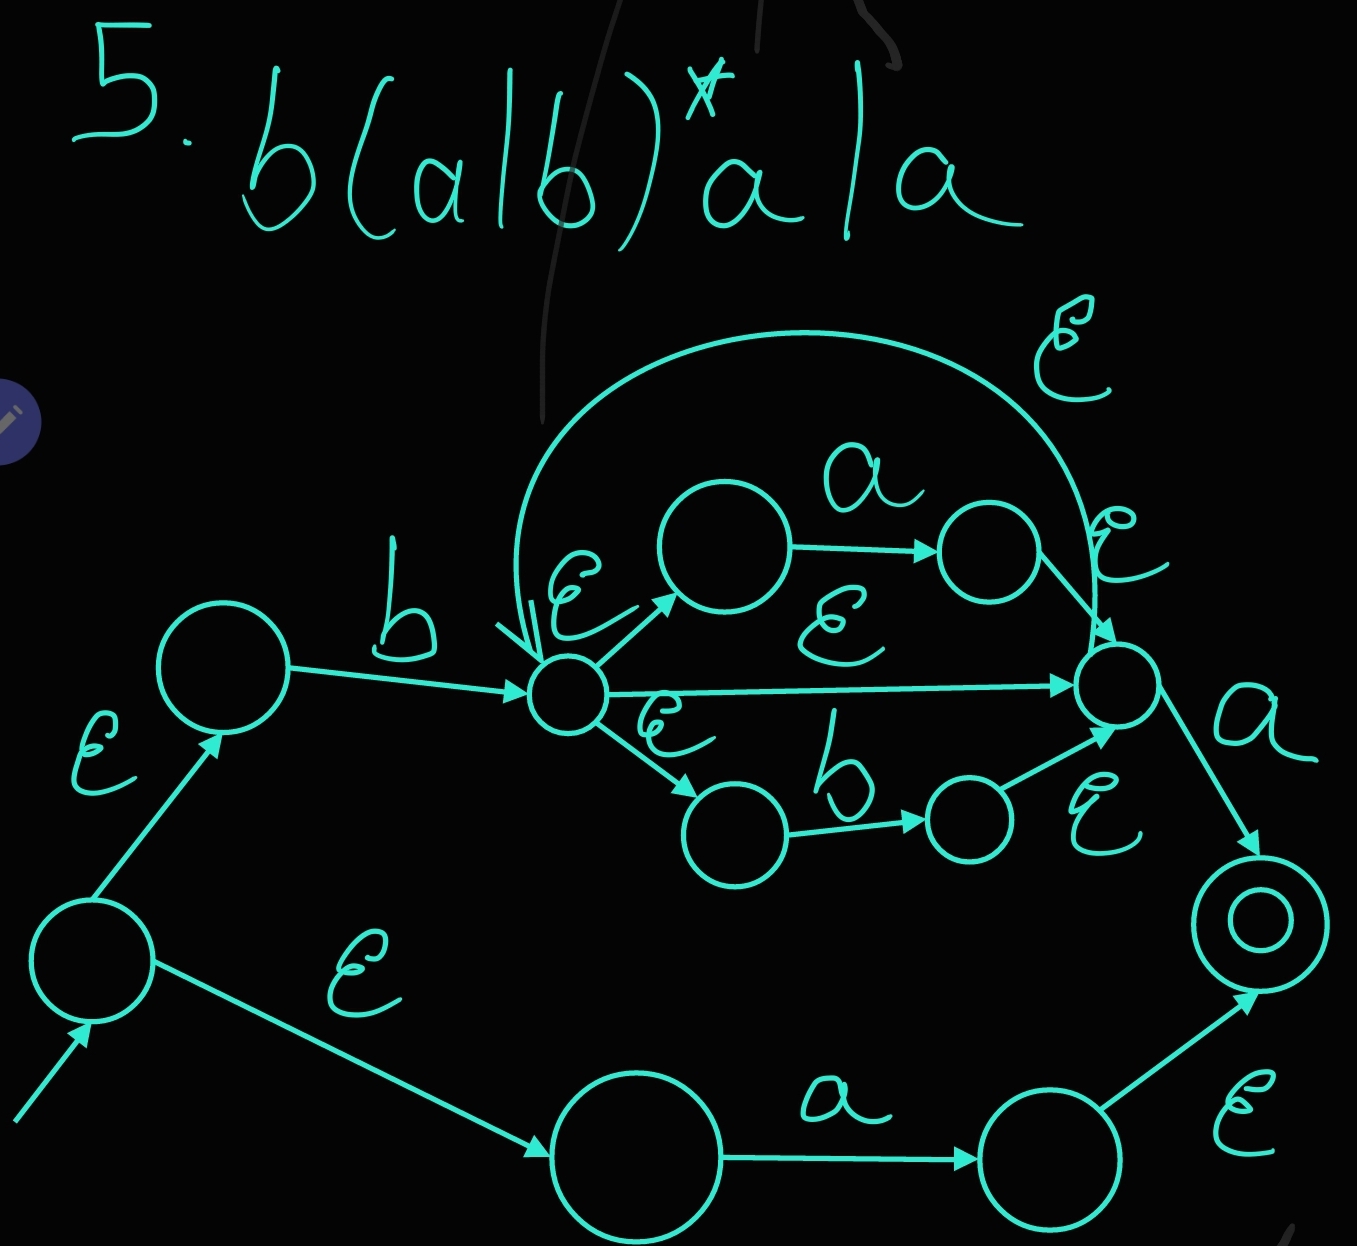 5. b(a|b)*a|a
ε
a
ε
ε
b
ε
ε
a
b
ε
ε
ε
a
ε